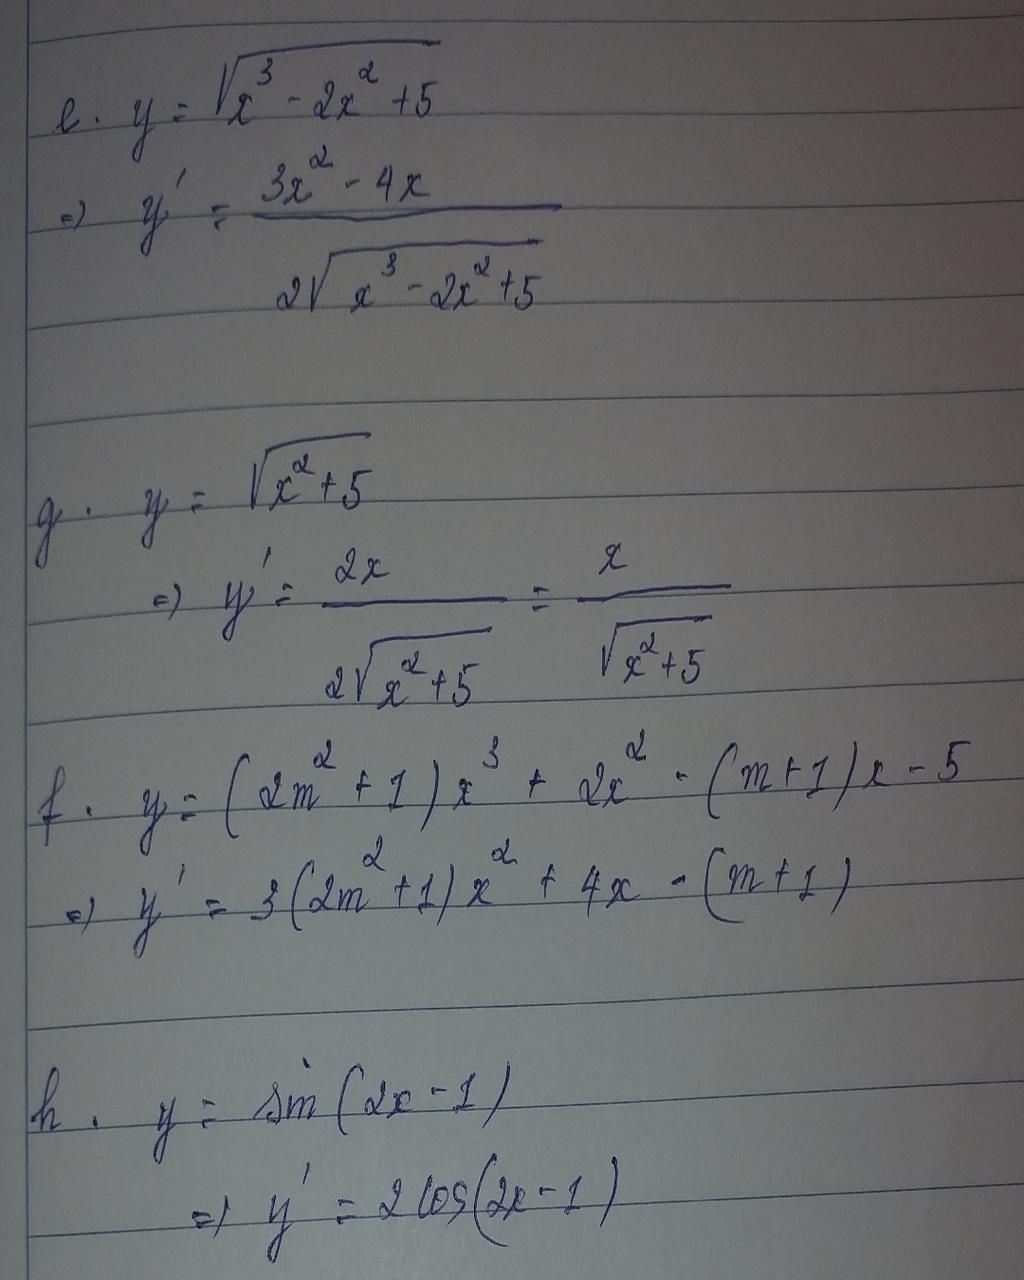 e. y = √(x³ - 2x² + 5)
=> y' = (3x² - 4x) / (2√(x³ - 2x² + 5))
g. y = √(x² + 5)
=> y' = 2x / (2√(x² + 5)) = x / √(x² + 5)
f. y = (2m² + 1)x³ + 2x² - (m + 1)x - 5
=> y' = 3(2m² + 1)x² + 4x - (m + 1)
h. y = sin(2x - 1)
=> y' = 2 cos(2x - 1)